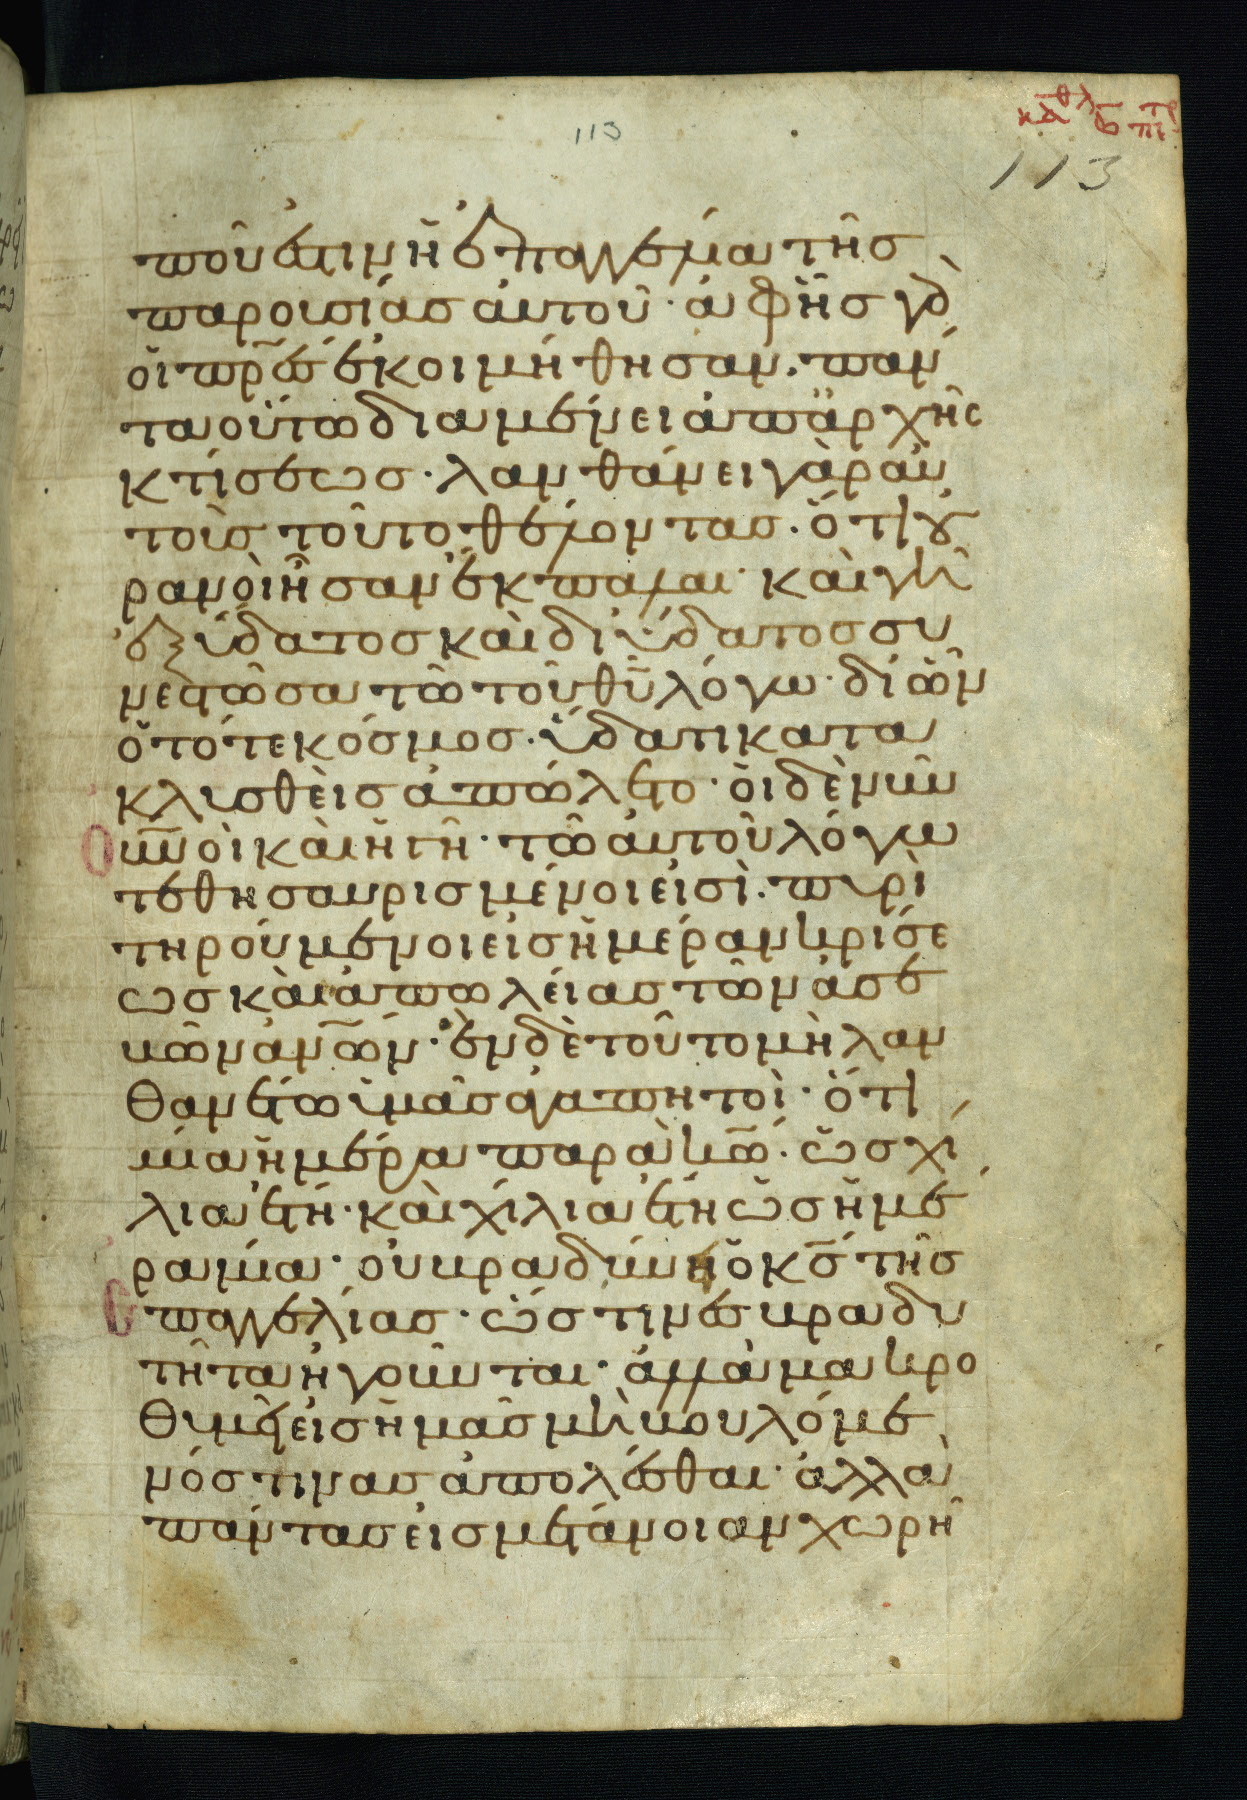 καθλ β πε τρ
113
113
ποῦ ἐστιν ἡ ἐπαγγελία τῆς
παρουσίας αὐτοῦ· ἀφ' ἧς γὰρ
οἱ πρ̅ς ἐκοιμήθησαν. πάν
τα οὕτω διαμένει ἀπ' ἀρχῆς
κτίσεως· λανθάνει γὰρ αὐ
τοὺς τοῦτο θέλοντας. ὅτι οὐ
ρανοὶ ἦσαν ἔκπαλαι· καὶ γῆ
ἐξ ὕδατος καὶ δι' ὕδατος συ
νεστῶσα τῶ τοῦ θ̅υ λόγω· δι' ὧν
ὁ τότε κόσμος· ὕδατι κατα
κλυσθεὶς ἀπώλετο· οἱ δὲ νῦν
οὐ̅νοὶ καὶ ἡ γῆ· τῶ αὐτοῦ λόγω
τεθησαυρισμένοι εἰσὶ. πυρὶ
τηρούμενοι εἰς ἡμέραν κρίσε
ως καὶ ἀπωλείας τῶν ἀσε
βῶν ἀν̅ων· ἓν δὲ τοῦτο μὴ λαν
θανέτω ὑμᾶς ἀγαπητοὶ· ὅτι
μία ἡμέρα παρὰ κ̅ω. ὡς χί
λια ἔτη· καὶ χίλια ἔτη ὡς ἡμέ
ρα μία· οὐ βραδύνει ὁ κ̅ς τῆς
ἐπαγγελίας· ὥς τινες βραδυ
τῆτα ἡγοῦνται· ἀλλὰ μακρο
θυμεῖ εἰς ἡμᾶς μὴ βουλόμε
νός τινας ἀπολέσθαι· ἀλλὰ
πάντας εἰς μετάνοιαν χωρῆ